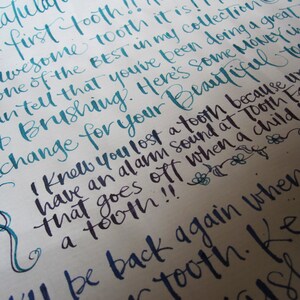 first Tooth!!
Awesome tooth it is!
one of the BEST in my collection
tell that you've been doing a great
Brushing. Here's some Money in
change for your Beautiful to
I knew you lost a tooth because w
have an alarm sound at Tooth
that goes off when a child
a tooth!!
be back again when
tooth. Ke